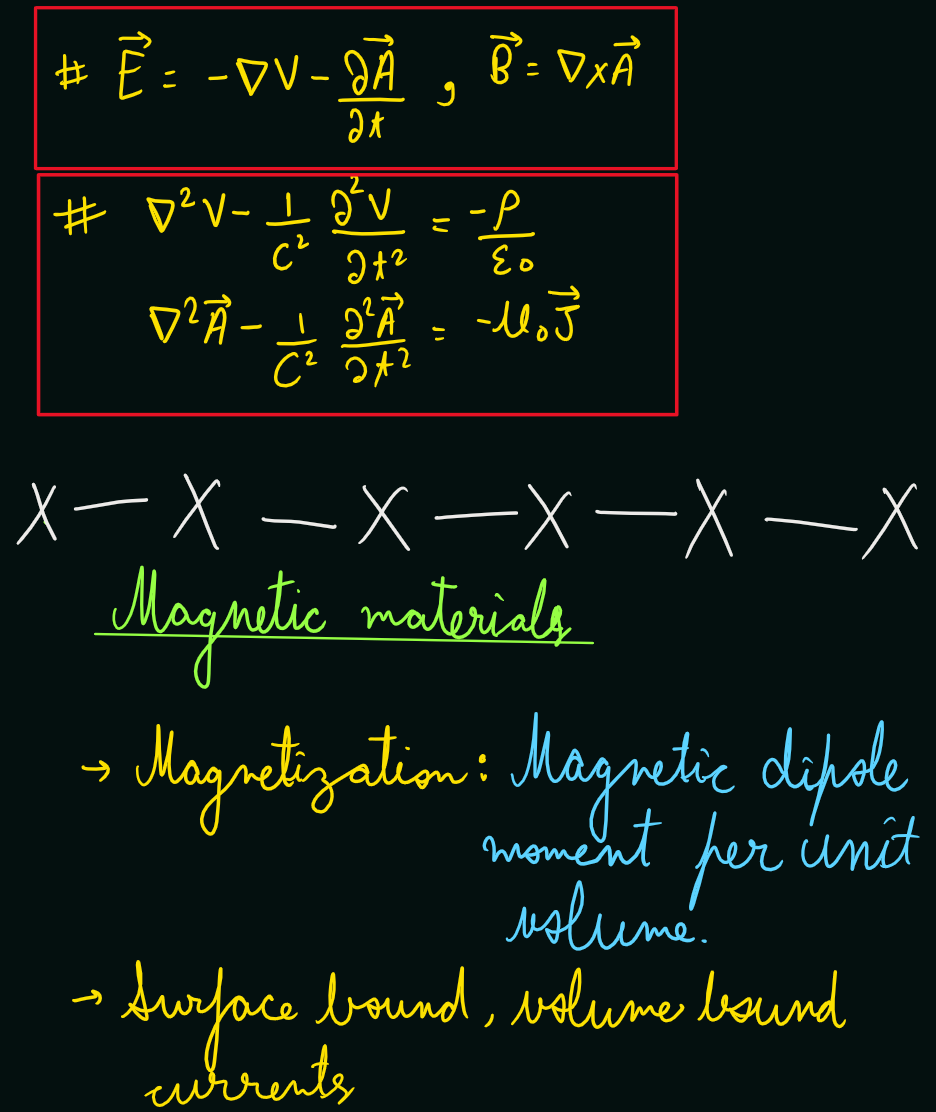 # E⃗ = -∇V - ∂A⃗/∂t , B⃗ = ∇×A⃗
# ∇²V - 1/C² ∂²V/∂t² = -ρ/ε₀
∇²A⃗ - 1/C² ∂²A⃗/∂t² = -μ₀J⃗
X — X — X — X — X — X
Magnetic materials
→ Magnetization: Magnetic dipole
moment per unit
volume.
→ Surface bound, volume bound
currents